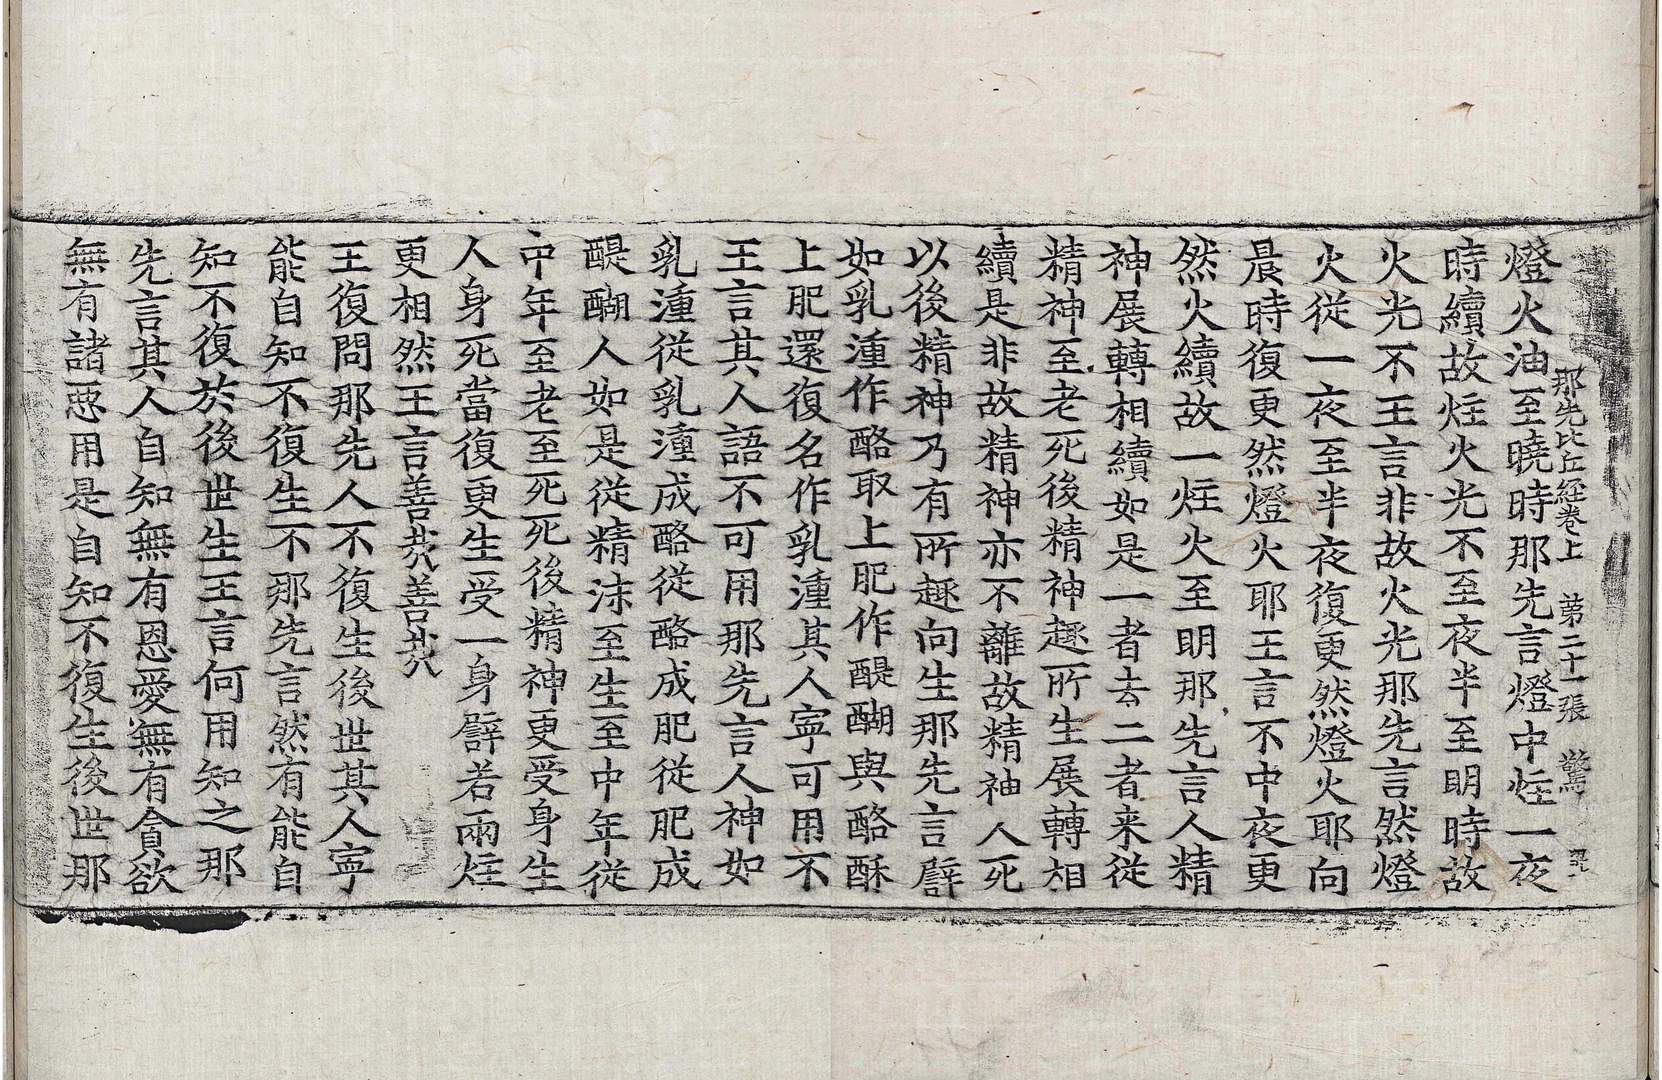 那先比丘経巻上 第二十一張 驚
燈火油至曉時那先言燈中炷一夜
時續故炷火光不至夜半至明時故
火光不王言非故火光那先言然燈
火從一夜至半夜復更然燈火耶向
晨時復更然燈火耶王言不中夜更
然火續故一炷火至明那先言人精
神展轉相續如是一者去二者来從
精神至老死後精神趣所生展轉相
續是非故精神亦不離故精神人死
以後精神乃有所趣向生那先言譬
如乳湩作酪取上肥作醍醐與酪酥
上肥還復名作乳湩其人寧可用不
王言其人語不可用那先言人神如
乳湩從乳湩成酪從酪成肥從肥成
醍醐人如是從精沫至生至中年從
中年至老至死死後精神更受身生
人身死當復更生受一身譬若兩炷
更相然王言善哉善哉
王復問那先人不復生後世其人寧
能自知不復生不那先言然有能自
知不復於後世生王言何用知之那
先言其人自知無有恩愛無有貪欲
無有諸惡用是自知不復生後世那